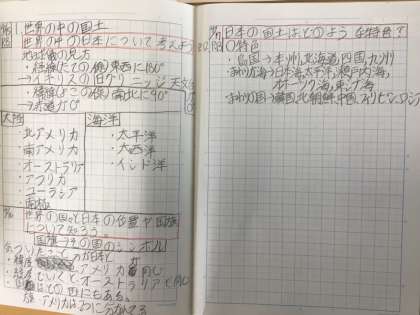 世界の中の国土
世界の中の日本について考えよう
地球儀の見方
・経線(たての線)東西に180°
→イギリスの旧グリニッジ天文台
・緯線(よこの線)南北に90°
→赤道が0°
大陸
海洋
・北アメリカ
・南アメリカ
・オーストラリア
・アフリカ
・ユーラシア
・南極
・太平洋
・大西洋
・インド洋
世界の国々と日本の位置や国旗
について知ろう。
国旗…その国のシンボル
気づいたこと
日本の国土はどのような特色?
の特色
・島国→本州,北海道,四国,九州
・まわりの海→日本海,太平洋,瀬戸内海,
オホーツク海,東シナ海
・まわりの国→韓国,北朝鮮,中国,フィリピン,ロシア